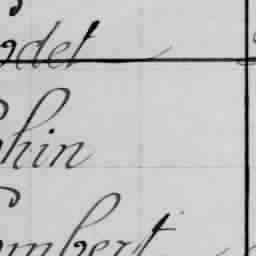 det
hin
mbert